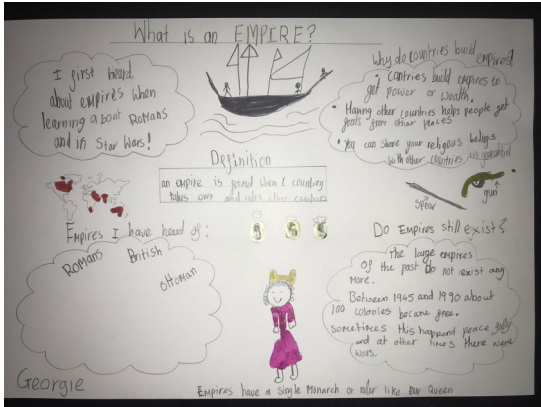 What is an EMPIRE?
I first heard
about empires when
learning about Romans
and in Star Wars!
Why do countries build empires?
Cantries build empires to
get power or wealth.
Having other countries helps people get
goods from other places
You can share your religious beliefs
with other countries
Definition
an empire is formed when 1 country
takes over and rules other countries
spear
gun
Empires I have heard of:
Romans
British
ottoman
Do Empires still exist?
The large empires
Of the past do not exist any
more.
Between 1945 and 1990 about
100 colonies became free.
sometimes this happend peace fully
and at other times there were
wars.
Georgie
Empires have a single Monarch or ruler like our Queen